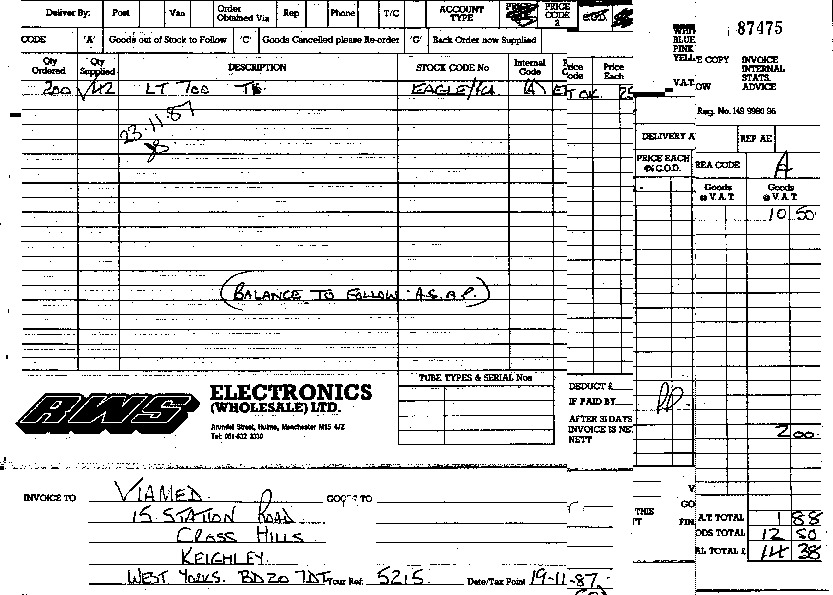 Deliver By: Post Van Order Obtained Via Rep Phone T/C ACCOUNT TYPE PRICE CODE 2
87475
CODE 'A' Goods out of Stock to Follow 'C' Goods Cancelled please Re-order 'G' Back Order now Supplied
BLUE
PINK
COPY INVOICE
INTERNAL
STATS.
ADVICE
V.A.T.
Reg. No. 149 9980 96
Qty Ordered Qty Supplied DESCRIPTION STOCK CODE No Internal Code Price Code Price Each
200 42 LT 700 EAGLE
23.11.87
DELIVERY A
REP AE
PRICE EACH
G.O.D.
REA CODE A
Goods @ V.A.T Goods @ V.A.T
10 50
(BALANCE TO FOLLOW A.S.A.P.)
TUBE TYPES & SERIAL Nos
RWS ELECTRONICS
(WHOLESALE) LTD.
Arundel Street, Hulme, Manchester M15 4JZ
DEDUCT £
IF PAID BY
AFTER 31 DAYS
INVOICE IS NE
NETT
2 00
INVOICE TO VIAMED GOODS TO
15 STATION ROAD
CROSS HILLS
KEIGHLEY
WEST YORKS. BD20 7DT Your Ref: 5215 Date/Tax Point 19-11-87
THIS
GO
FIN
A.T TOTAL 1 88
ODS TOTAL 12 50
AL TOTAL £ 14 38